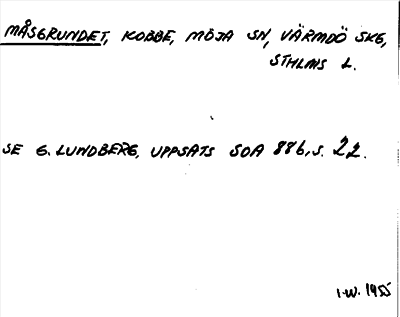 MÅSGRUNDET, KOBBE, MÖJA SN, VÄRMDÖ SKG,
STHLMS L.
SE G. LUNDBERG, UPPSATS SOA 886, S. 22.
I.W. 1955